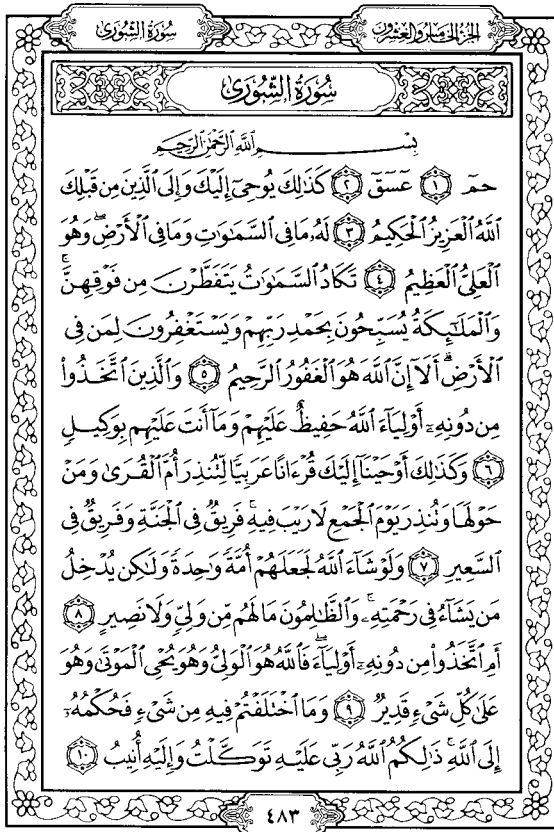 سُورَةُ الشُّورَىٰ
الجُزءُ الخَامِسُ وَالعِشْرُونَ
سُورَةُ الشُّورَىٰ
بِسْمِ اللَّهِ الرَّحْمَٰنِ الرَّحِيمِ
حمٓ ١ عٓسٓقٓ ٢ كَذَٰلِكَ يُوحِىٓ إِلَيْكَ وَإِلَى الَّذِينَ مِن قَبْلِكَ
اللَّهُ الْعَزِيزُ الْحَكِيمُ ٣ لَهُۥ مَا فِى السَّمَٰوَٰتِ وَمَا فِى الْأَرْضِ ۖ وَهُوَ
الْعَلِىُّ الْعَظِيمُ ٤ تَكَادُ السَّمَٰوَٰتُ يَتَفَطَّرْنَ مِن فَوْقِهِنَّ ۚ
وَالْمَلَٰٓئِكَةُ يُسَبِّحُونَ بِحَمْدِ رَبِّهِمْ وَيَسْتَغْفِرُونَ لِمَن فِى
الْأَرْضِ ۗ أَلَآ إِنَّ اللَّهَ هُوَ الْغَفُورُ الرَّحِيمُ ٥ وَالَّذِينَ اتَّخَذُوا۟
مِن دُونِهِۦٓ أَوْلِيَآءَ اللَّهُ حَفِيظٌ عَلَيْهِمْ وَمَآ أَنتَ عَلَيْهِم بِوَكِيلٍ
٦ وَكَذَٰلِكَ أَوْحَيْنَآ إِلَيْكَ قُرْءَانًا عَرَبِيًّا لِّتُنذِرَ أُمَّ الْقُرَىٰ وَمَنْ
حَوْلَهَا وَتُنذِرَ يَوْمَ الْجَمْعِ لَا رَيْبَ فِيهِ ۚ فَرِيقٌ فِى الْجَنَّةِ وَفَرِيقٌ فِى
السَّعِيرِ ٧ وَلَوْ شَآءَ اللَّهُ لَجَعَلَهُمْ أُمَّةً وَٰحِدَةً وَلَٰكِن يُدْخِلُ
مَن يَشَآءُ فِى رَحْمَتِهِۦ ۚ وَالظَّٰلِمُونَ مَا لَهُم مِّن وَلِىٍّ وَلَا نَصِيرٍ ٨
أَمِ اتَّخَذُوا۟ مِن دُونِهِۦٓ أَوْلِيَآءَ ۖ فَاللَّهُ هُوَ الْوَلِىُّ وَهُوَ يُحْىِ الْمَوْتَىٰ وَهُوَ
عَلَىٰ كُلِّ شَىْءٍ قَدِيرٌ ٩ وَمَا اخْتَلَفْتُمْ فِيهِ مِن شَىْءٍ فَحُكْمُهُۥٓ
إِلَى اللَّهِ ۚ ذَٰلِكُمُ اللَّهُ رَبِّى عَلَيْهِ تَوَكَّلْتُ وَإِلَيْهِ أُنِيبُ ١٠
٤٨٣